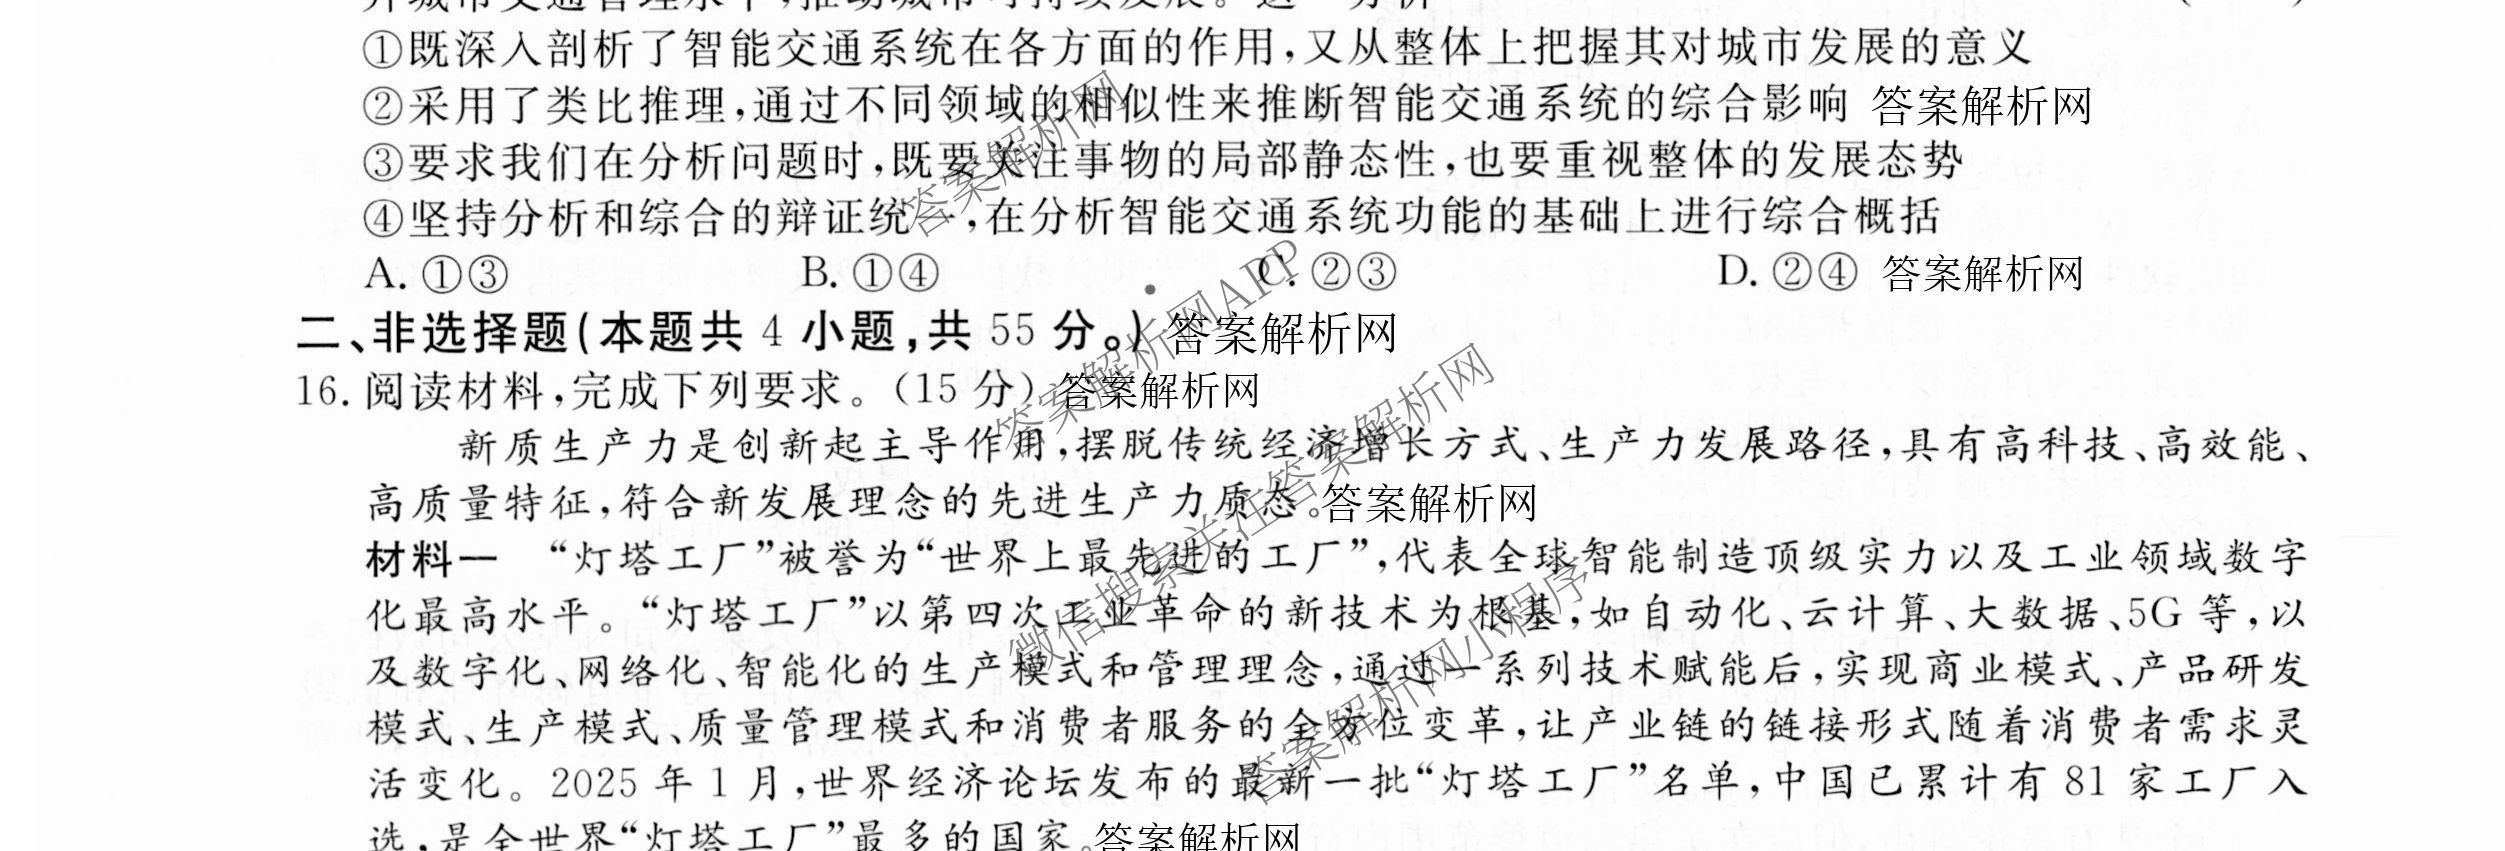 升城市交通管理水平,推动城市可持续发展。这一分析
①既深入剖析了智能交通系统在各方面的作用,又从整体上把握其对城市发展的意义
②采用了类比推理,通过不同领域的相似性来推断智能交通系统的综合影响 答案解析网
③要求我们在分析问题时,既要关注事物的局部静态性,也要重视整体的发展态势
④坚持分析和综合的辩证统一,在分析智能交通系统功能的基础上进行综合概括
A. ①③ B. ①④ C. ②③ D. ②④ 答案解析网
二、非选择题(本题共 4 小题,共 55 分。) 答案解析网
16. 阅读材料,完成下列要求。(15 分) 答案解析网
新质生产力是创新起主导作用,摆脱传统经济增长方式、生产力发展路径,具有高科技、高效能、
高质量特征,符合新发展理念的先进生产力质态。答案解析网
材料一 “灯塔工厂”被誉为“世界上最先进的工厂”,代表全球智能制造顶级实力以及工业领域数字
化最高水平。“灯塔工厂”以第四次工业革命的新技术为根基,如自动化、云计算、大数据、5G 等,以
及数字化、网络化、智能化的生产模式和管理理念,通过一系列技术赋能后,实现商业模式、产品研发
模式、生产模式、质量管理模式和消费者服务的全方位变革,让产业链的链接形式随着消费者需求灵
活变化。2025 年 1 月,世界经济论坛发布的最新一批“灯塔工厂”名单,中国已累计有 81 家工厂入
选,是全世界“灯塔工厂”最多的国家。答案解析网
答案解析网
答案解析网APP
微信搜索关注答案解析网
答案解析网小程序